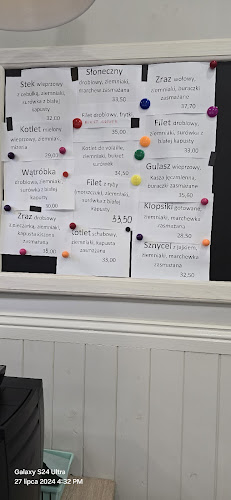 Stek wieprzowy
z cebulką, ziemniaki,
surówka z białej
kapusty
32,00
Kotlet mielony
wieprzowy, ziemniaki,
mizeria
29,00
Wątróbka
drobiowa, ziemniaki,
surówka z białej
kapusty
30,00
Zraz drobiowy
z pieczarką, ziemniaki,
kapusta kiszona
zasmażana
35,00
Słoneczny
drobiowy, ziemniaki,
marchew zasmażana
33,50
Filet drobiowy, frytki
35,00
Kotlet de volaille,
ziemniaki, bukiet
surówek
34,50
Filet z ryby
(morszczuk), ziemniaki,
surówka z białej
kapusty
33,50
Kotlet schabowy,
ziemniaki, kapusta
zasmażana
35,00
Zraz wołowy,
ziemniaki, buraczki
zasmażane
37,70
Filet drobiowy,
ziemniaki, surówka z
białej kapusty
33,00
Gulasz wieprzowy,
kasza jęczmienna,
buraczki zasmażane
Klopsiki gotowane,
ziemniaki, marchewka
zasmażana
28,50
Sznycel z jajkiem,
ziemniaki, marchewka
zasmażana
32,50
Galaxy S24 Ultra
27 lipca 2024 4:32 PM